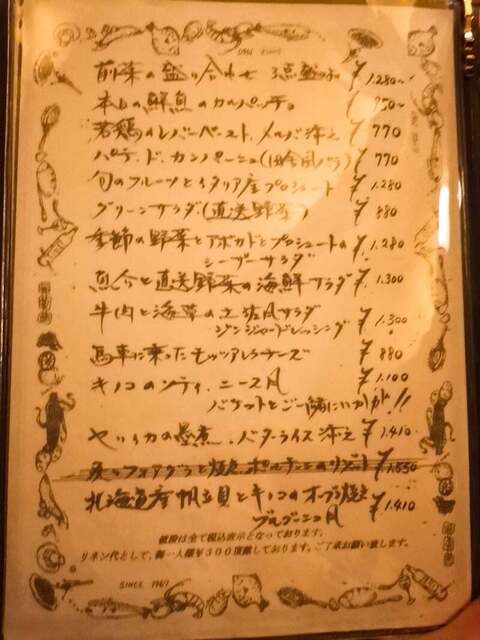 SINCE
前菜の盛り合わせ 3点盛り ¥1,280〜
本日の鮮魚のカルパッチョ 950〜
若鶏のレバーペースト、メルバ添え ¥770
パテ・ド・カンパーニュ(田舎風パテ) ¥770
旬のフルーツとイタリア産プロシュート ¥1,280
グリーンサラダ(直送野菜) ¥880
季節の野菜とアボカドとプロシュートの ¥1,280
シーザーサラダ
魚介と直送野菜の海鮮サラダ ¥1,300
牛肉と海草の サラダ
ジンジャードレッシング ¥1,300
馬車に乗ったモッツアレラチーズ ¥880
キノコのソティ、ニース風 ¥1,100
バケットとご一緒にいかが!!
ヤリイカの墨煮、バターライス添え ¥1,410
フォアグラ 焼 ¥1,550
北海道産帆立貝とキノコのオーブン焼き
ブルゴーニュ風 ¥1,410
価格は全て税込表示となっております。
リネン代として、御一人様¥300頂戴しております。ご了承お願い致します。
SINCE 1967